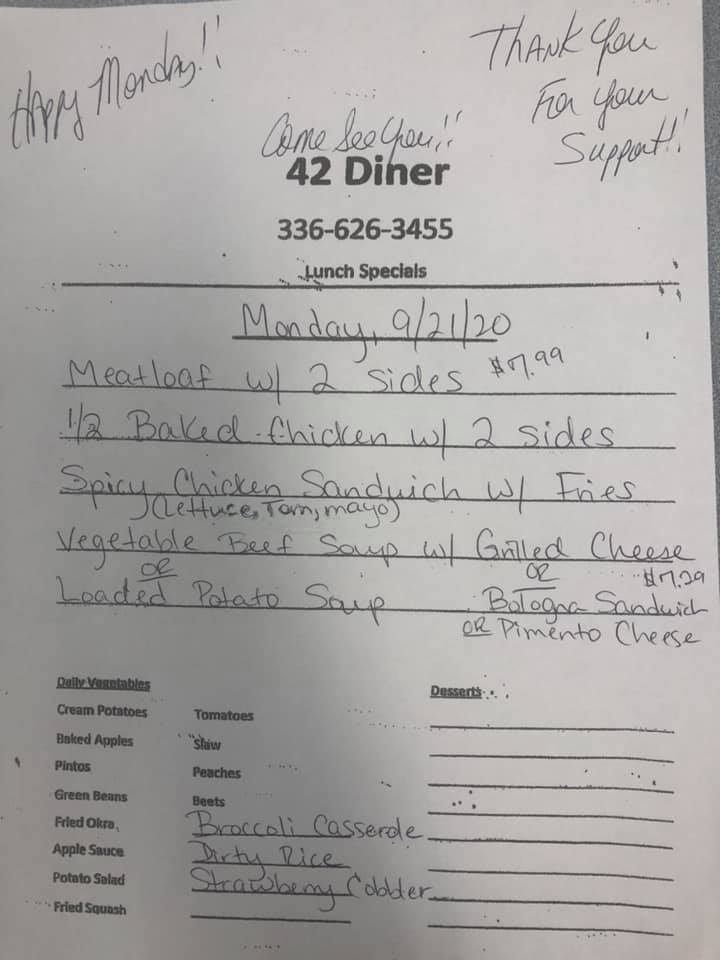 Happy Monday!!
Thank you
For your
Support!!
Come See You!!
42 Diner
336-626-3455
Lunch Specials
Monday, 9/21/20
Meatloaf w/ 2 sides $7.99
1/2 Baked Chicken w/ 2 sides
Spicy Chicken Sandwich w/ Fries
(Lettuce, Tom, mayo)
Vegetable Beef Soup w/ Grilled Cheese
OR OR $7.29
Loaded Potato Soup Bologna Sandwich
OR Pimento Cheese
Daily Vegetables Desserts
Cream Potatoes Tomatoes
Baked Apples Slaw
Pintos Peaches
Green Beans Beets
Fried Okra Broccoli Casserole
Apple Sauce Dirty Rice
Potato Salad Strawberry Cobbler
Fried Squash